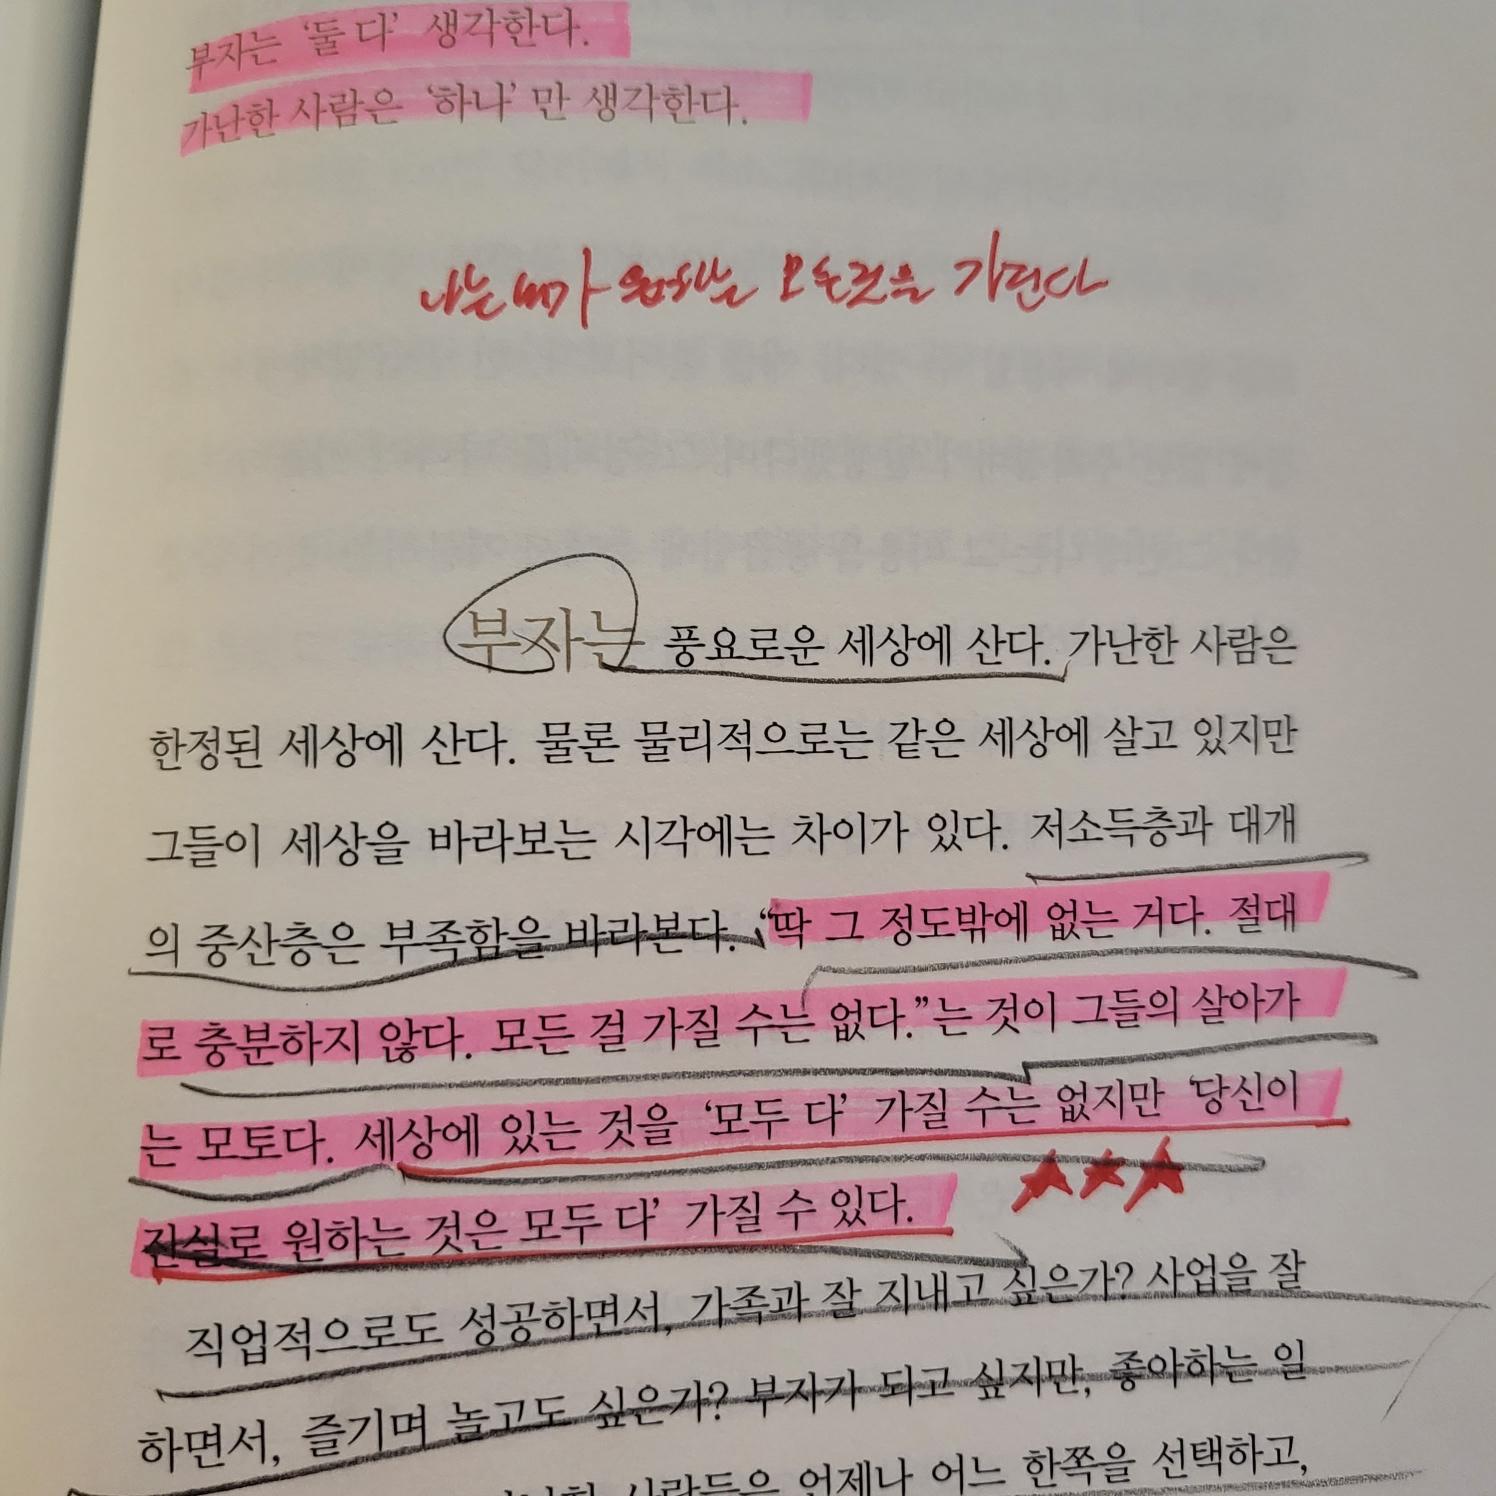 부자는 ‘둘 다’ 생각한다.
가난한 사람은 ‘하나’만 생각한다.
나는 내가 원하는 모든것을 가진다
부자는 풍요로운 세상에 산다. 가난한 사람은
한정된 세상에 산다. 물론 물리적으로는 같은 세상에 살고 있지만
그들이 세상을 바라보는 시각에는 차이가 있다. 저소득층과 대개
의 중산층은 부족함을 바라본다. “딱 그 정도밖에 없는 거다. 절대
로 충분하지 않다. 모든 걸 가질 수는 없다.”는 것이 그들의 살아가
는 모토다. 세상에 있는 것을 ‘모두 다’ 가질 수는 없지만 ‘당신이
진실로 원하는 것은 모두 다’ 가질 수 있다.
직업적으로도 성공하면서, 가족과 잘 지내고 싶은가? 사업을 잘
하면서, 즐기며 놀고도 싶은가? 부자가 되고 싶지만, 좋아하는 일
사람들은 언제나 어느 한쪽을 선택하고,